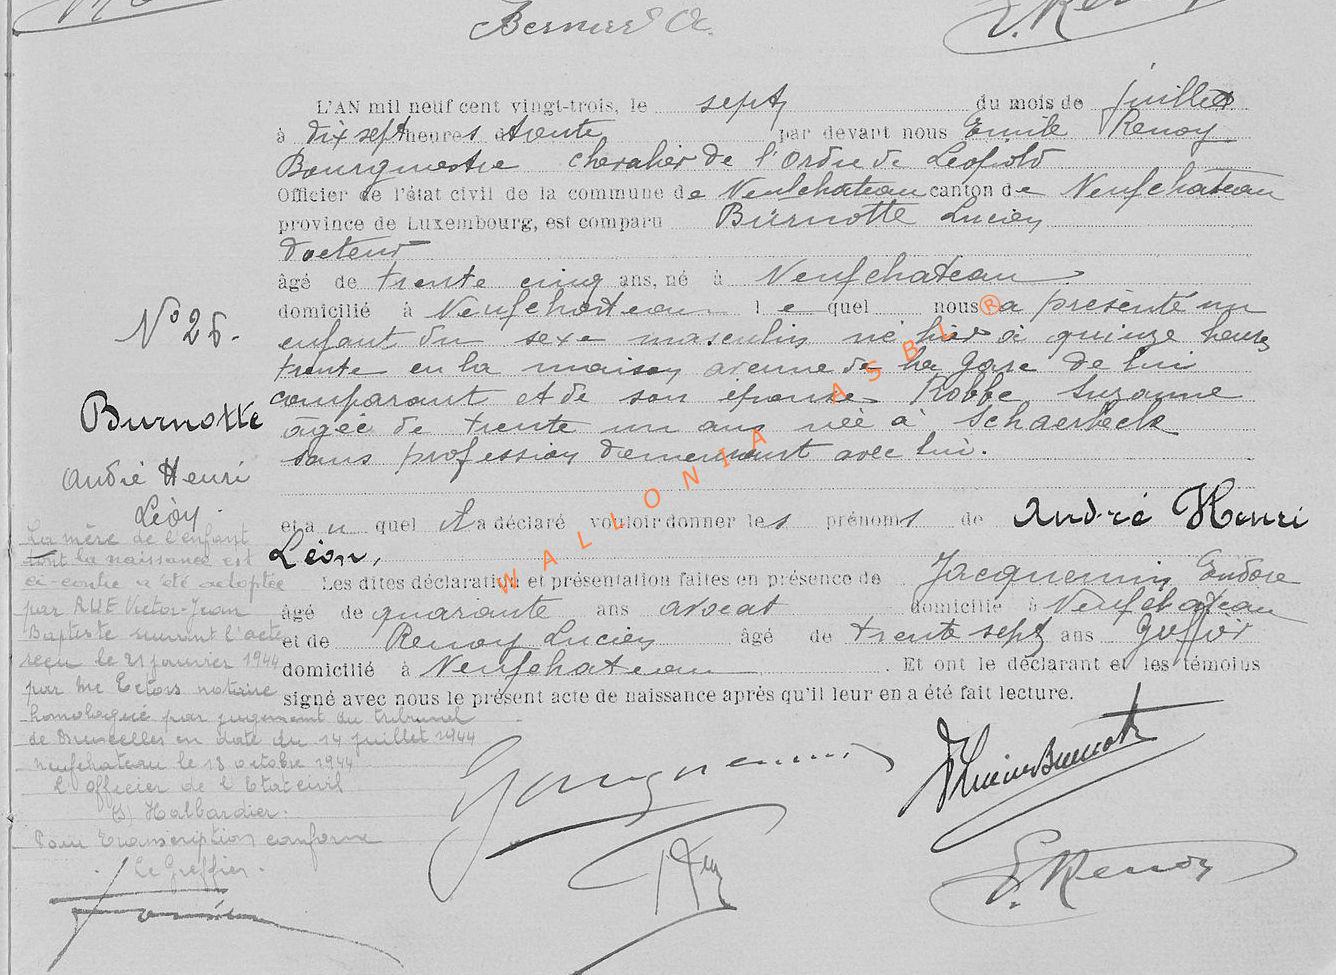 Bernier
L'AN mil neuf cent vingt-trois, le sept du mois de juillet
à dix sept heures trente par devant nous Emile Renoy
Bourgmestre chevalier de l'Ordre de Léopold
Officier de l'état civil de la commune de Neufchateau canton de Neufchateau
province de Luxembourg, est comparu Burnotte Lucien
docteur
âgé de trente cinq ans, né à Neufchateau
domicilié à Neufchateau lequel nous a présenté un
enfant du sexe masculin né hier à quinze heures
trente en la maison avenue de la gare de lui
comparant et de son épouse Robbe Suzanne
agée de trente un ans née à Schaerbeek
sans profession demeurant avec lui.
et auquel il a déclaré vouloir donner les prénoms de André Henri
Léon,
Les dites déclaration et présentation faites en présence de Jacquemin Eudore
âgé de quarante ans avocat domicilié à Neufchateau
et de Renoy Lucien âgé de trente sept ans Greffier
domicilié à Neufchateau. Et ont le déclarant et les témoins
signé avec nous le présent acte de naissance après qu'il leur en a été fait lecture.
N° 26.
Burnotte
André Henri
Léon.
La mère de l'enfant
dont la naissance est
ci-contre a été adoptée
par Victor-Jean
Baptiste suivant l'acte
reçu le 21 janvier 1944
par Me Ectors notaire
homologué par jugement du tribunal
de Bruxelles en date du 14 juillet 1944
Neufchateau le 18 octobre 1944
L'officier de l'Etat civil
(s) Halbardier.
Pour transcription conforme
Le Greffier.
Jacquemin
Lucien Burnotte
E. Renoy
WALLONIA ASBL ®